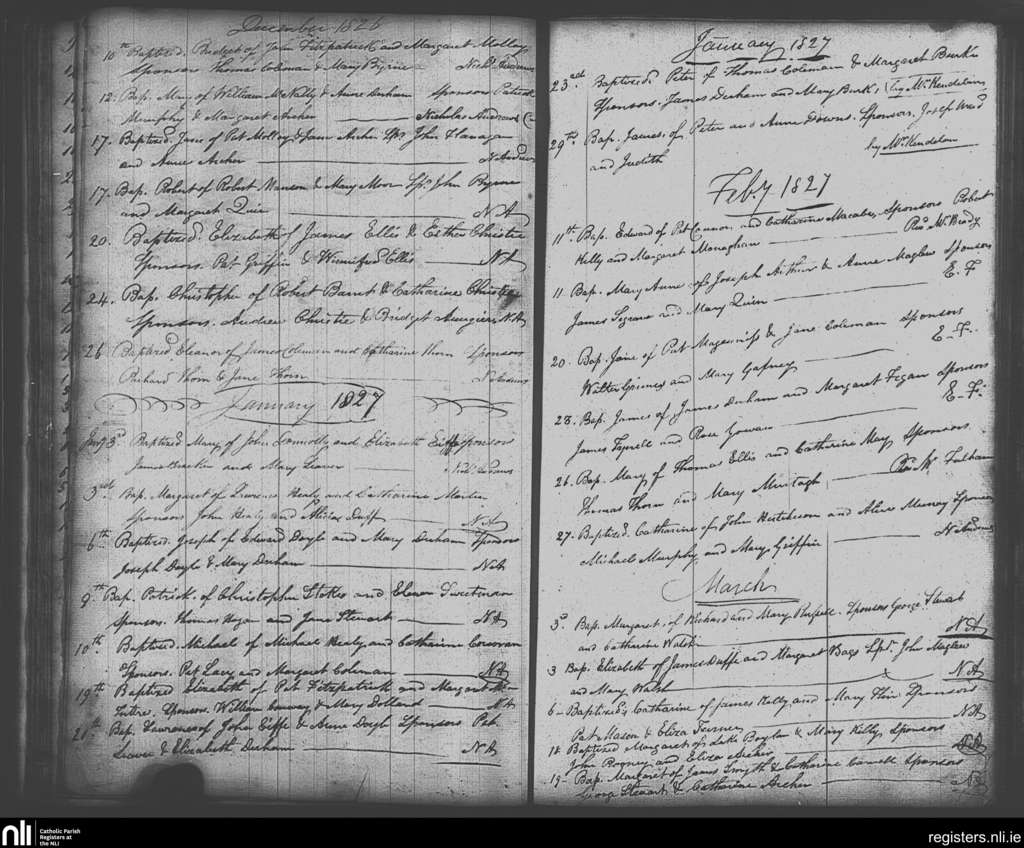 December 1826
10th Baptized. Bridget of John Fitzpatrick and Margaret Molloy
Sponsors Thomas Coleman & Mary Byrne
12. Bap. Mary of William McNally & Anne Denham Sponsors Patrick
Murphy & Margaret Archer Nicholas
17. Baptized. Jane of Pat Molloy & Jane Archer Sps. John Flanagan
and Anne Archer
17. Bap. Robert of Robert Manson & Mary Moor Sps. John Byrne
and Margaret Quin N A
20. Baptized. Elizabeth of James Ellis & Esther Christie
Sponsors. Pat Griffin & Winnifred Ellis N A
24. Bap. Christopher of Robert Barret & Catharine Christie
Sponsors. Andrew Christie & Bridget N A
26 Baptized Eleanor of James Coleman and Catharine Thorn Sponsors
Richard Thorn & Jane Thorn
January 1827
Jany 3d Baptized Mary of John Connolly and Elizabeth Sponsors
James and Mary
3rd. Bap. Margaret of Lawrence Healy and Catharine Martin
Sponsors John Healy and Alicia Duff N A
6th Baptized. Joseph of Edward Doyle and Mary Denham Sponsors
Joseph Doyle & Mary Denham N A
9th Bap. Patrick of Christopher Stokes and Eleanor Sweetman
Sponsors. Thomas Hogan and Jane Stewart N A
10th Baptized. Michael of Michael Healy and Catharine Corcoran
Sponsors. Pat Lacy and Margaret Coleman N A
19th Baptized Elizabeth of Pat Fitzpatrick and Margaret Mc
Intire, Sponsors. William Conway & Mary Dollard N A
21st Bap. Lawrence of John Eiffe & Anne Doyle Sponsors Pat
& Elizabeth Denham N A
January 1827
23rd Baptized Peter of Thomas Coleman & Margaret Burk
Sponsors. James Denham and Mary Burk; by Mr. Kendelan
29th Bap. James of Peter and Anne Downs. Sponsors. Joseph Ward
and Judith by Mr. Kendelan
Feby 1827
11th. Bap. Edward of Pat Connor, and Catharine Sponsors Robert
Kelly and Margaret Monaghan Revd. Mr. Brady
11. Bap. Mary Anne of Joseph Arthur & Anne Sponsors
James Segrave and Mary Quin E. F
20. Bap. Jane of Pat Maguinniss & Jane Coleman Sponsors
Walter Grimes and Mary Gafney E. F.
28. Bap. James of James Denham and Margaret Fegan Sponsors
James Tyrrell and Rose Gowan E. F.
26. Bap. Mary of Thomas Ellis and Catharine May Sponsors
Thomas Thorn and Mary Murtagh Revd. Mr. Fulham
27. Baptized. Catharine of John Hutchison and Alice Murray Sponsors
Michael Murphy and Mary Griffin
March
3d. Bap. Margaret. of Richard and Mary Russell. Sponsors George Stewart
and Catharine Walsh N A
3 Bap. Elizabeth of James Duffe and Margaret Sps. John
and Mary Walsh N A
6 Baptized; Catharine of James Kelly and Mary Sponsors
Pat Mason & Eliza N A
18 Baptized Margaret of Luke Boylan & Mary Kelly, Sponsors
John and Eliza Archer N A
19 Bap. Margaret of James Smyth & Catharine Sponsors
George Stewart & Catharine Archer N A
nli Catholic Parish
Registers at
the NLI
registers.nli.ie